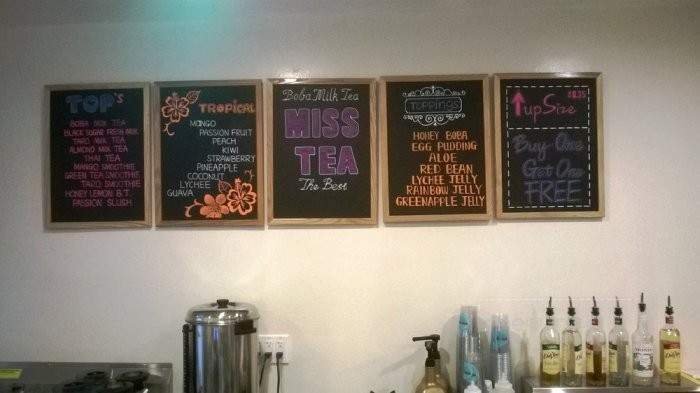 TOP's
BOBA MILK TEA
BLACK SUGAR FRESH MILK
TARO MILK TEA
ALMOND MILK TEA
THAI TEA
MANGO SMOOTHIE
GREEN TEA SMOOTHIE
TARO SMOOTHIE
HONEY LEMON B.T.
PASSION SLUSH
TROPICAL
MANGO
PASSION FRUIT
PEACH
KIWI
STRAWBERRY
PINEAPPLE
COCONUT
LYCHEE
GUAVA
Boba Milk Tea
MISS
TEA
The Best
TOPPINGS
HONEY BOBA
EGG PUDDING
ALOE
RED BEAN
LYCHEE JELLY
RAINBOW JELLY
GREENAPPLE JELLY
upSize
Buy One
Get One
FREE